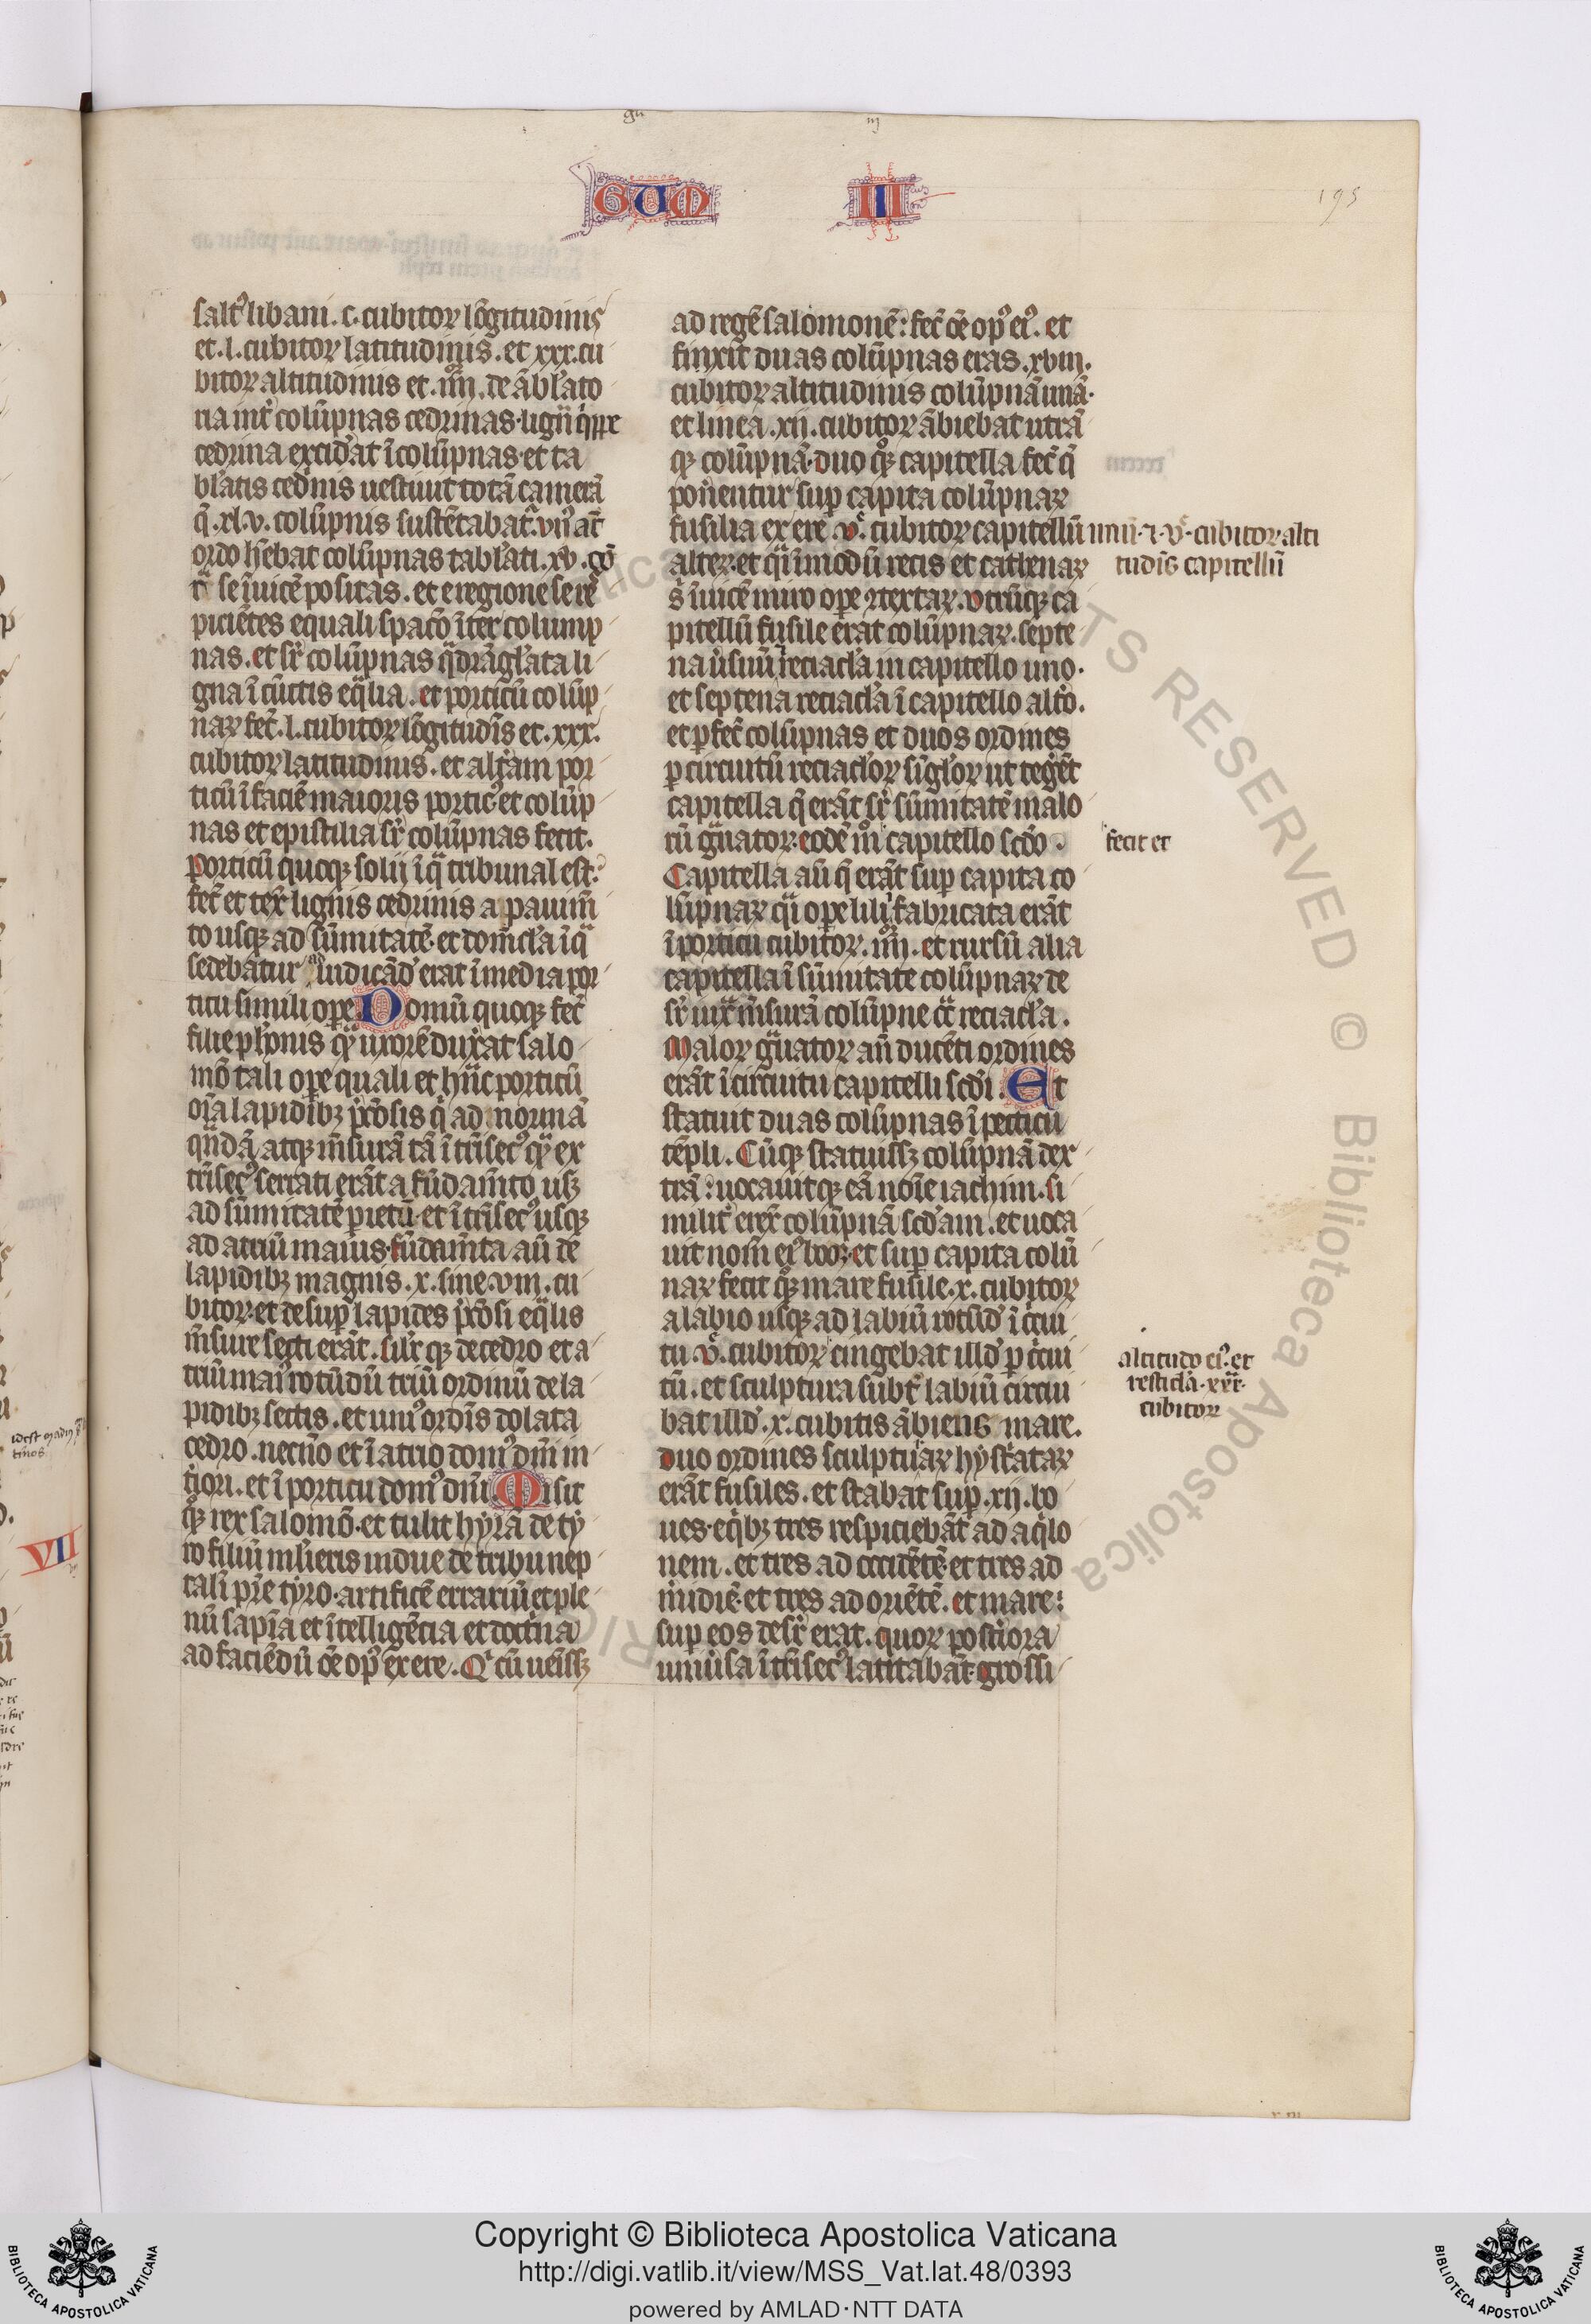 gū
iij
GUM
III
195
saltꝰ libani. c. cubitoꝝ lōgitudinis
et. l. cubitoꝝ latitudinis. et xxx. cu
bitoꝝ altitudinis et. iiii. deābl'ato
ria int̄ colūpnas cedrinas. ligna qͥppe
cedrina excid'at ī colūpnas. et ta
bl'atis ced'nis uestiuit totā camerā
q̄. xl. v. colūpnis sustētabat᷑. vnꝰ aūt
ordo h̄ebat colūpnas tabl'ati. xv. cō
t̄ se īuicē positas. et e regione se re
piciētes equali spacō īter colump
nas. et sr̄ colūpnas qͣdrāgl'ata li
gna ī cūctis eqͣlia. et porticū colūp
naꝝ fec̄. l. cubitoꝝ lōgitud'īs et. xxx.
cubitoꝝ latitudinis. et alt̄am por
ticū ī faciē maioris porticꝰ et colūp
nas et epistilia sr̄ colūpnas fecit.
Porticū quoqꝫ solij ī qͣ tribunal est:
fec̄ et tex̄ lignis cedrinis a pauim̄
to usqꝫ ad sūmitatē. et domc̄l'a ī qͣ
sedebatur ad iudicād' erat ī media por
ticu simili ope Domū quoqꝫ fec̄
filie ph'onis qͣꝫ uxorē dux̄at salo
mō tali ope quali et hūc porticū
oīa lapidibꝫ p̄ciōsis qͥ ad normā
qͣndā atqꝫ m̄surā tā ītͥsecꝰ qͣꝫ ex
tͥsecꝰ serrati erāt a fūdam̄to usqꝫ
ad sūmitatē pietū. et ītͥsecꝰ usqꝫ
ad atriū maius. fūdam̄ta aū de
lapidibꝫ magnis. x. siue. viii. cu
bitoꝝ. et desup lapides p̄ciōsi eqͣlis
m̄sure secti erāt. silr̄ qꝫ de cedro et a
triū maiꝰ rotūdū triū ordinū de la
pidibꝫ sectis. et uniꝰ ord'īs dolata
cedro. necnō et ī atrio domꝰ dn̄i in
t̄iori. et ī porticu domꝰ dn̄i. Misit
qͦꝫ rex salomō. et tulit hyrā de ty
ro filiū mlīeris uidue de tribu nep
tali pr̄e tyro. artificē errariū et ple
nū sapīa et ītelligēcia et doctͥna
ad faciēdū oē opꝰ ex ere. Qͥ cū uēissꝫ
ad regē salomonē: fec̄ oē opꝰ eiꝰ. et
finxit duas colūpnas eras. xviii.
cubitoꝝ altitudinis colūpnā unā.
et linea. xij. cubitoꝝ ābiebat utrā
qꝫ colūpnā. duo qͦꝫ capitella fec̄ q̄
pon̄entur sup capita colūpnaꝝ
fusilia ex ere. vͤ. cubitoꝝ capitellū unū. ⁊. vͤ. cubitoꝝ alti
tud'īs capitellū
alteꝝ. et qͣi ī modū retis et cathenaꝝ
s̄ īuicē miro ope ꝯtextaꝝ. vtrūqꝫ ca
pitellū fusile erat colūpnaꝝ. septe
na ūsuū reciacl'a in capitello uno.
et septena reciacl'a ī capitello alt̄o.
et pfec̄ colūpnas et duos ordines
p circuitū reciacl'oꝝ sīgl'oꝝ ut teḡēt
capitella q̄ erāt sr̄ sūmitatē malo
rū gͣnatoꝝ. eodē mͦ capitello scd'o.
fecit et
Capitella aū q̄ erāt sup capita co
lūpnaꝝ qͣi ope lilij fabricata erāt
ī porticu cubitoꝝ. iiii. et rursū alia
capitella ī sūmitate colūpnaꝝ de
sr̄ iuxͣ m̄surā colūpne cͣt reciacl'a.
Maloꝝ gͣnatoꝝ aū ducēti ordines
erāt ī circuitu capitelli scd'i. Et
statuit duas colūpnas ī porticu
tēpli. Cūqꝫ statuissꝫ colūpnā dex
trā: uocauitqꝫ eā noīe iachim. si
milit̄ erex̄ colūpnā scd'am. et uoca
uit nom̄ eiꝰ booꝫ. et sup capita colū
naꝝ fecit qͦꝫ mare fusile. x. cubitoꝝ
a labio usqꝫ ad labiū rotūd' ī c̄cui
tu. vͤ. cubitoꝝ cingebat illd' p c̄cui
altitudo eiꝰ. et
resticl'a. xxx.
cubitoꝝ
tū. et sculptura subt̄ labiū circui
bat illd'. x. cubitis ābiens mare.
duo ordines sculpturaꝝ hystͥataꝝ
erāt fusiles. et stabat sup. xij. bo
ues. eqͥbꝫ tres respiciebāt ad aqͥlo
nem. et tres ad occidētē. et tres ad
mͥdiē. et tres ad oriētē. et mare:
sup eos desr̄ erat. quoꝝ post̄iora
uniūsa ītͥsecꝰ latitabāt. grossi
VII
Copyright © Biblioteca Apostolica Vaticana
http://digi.vatlib.it/view/MSS_Vat.lat.48/0393
powered by AMLAD·NTT DATA
BIBLIOTECA APOSTOLICA VATICANA
BIBLIOTECA APOSTOLICA VATICANA